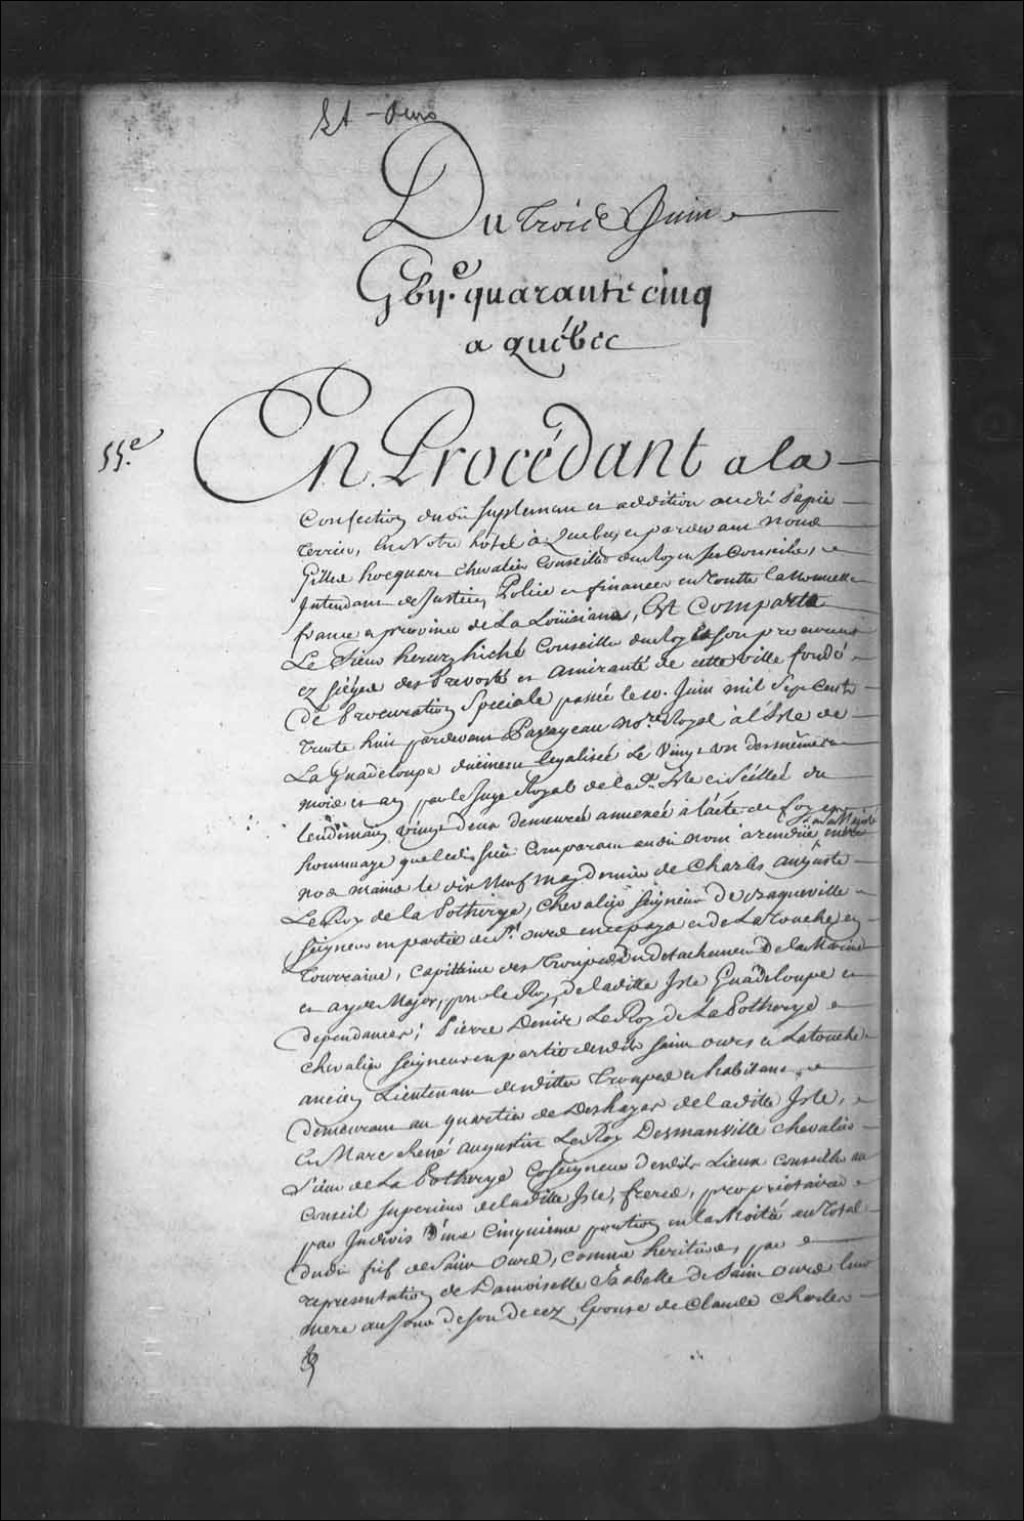 St - Ours
Du trois Juin
Gbijc. quarante cinq
a québec
55.e
En Procédant a la
Confection dudit Suplement et addition audit Papier
terrier, En Notre hôtel à Quebec, et pardevant Nous
Gilles hocquart chevalier Conseiller du Roy en ses Conseils,
Intendant de Justice, Police et finances en toutte la Nouvelle
france et province de La Loüisiane, Est Comparu
Le Sieur henry hiché Conseiller du Roy et son procureur
ez siéges des Prevosté et amirauté de cette ville fondé
de Procuration Speciale passée le 10. Juin mil Sept Cents
trente huit pardevant Panayeau No.re Royal à l'Isle de
La Guadeloupe duement legalisée Le Vingt un des mêmes
mois et an par le Juge Royal de lad. Isle et Scéllée du
lendemain vingt deux demeurée annexée à l'acte de foy et
hommage que ledit Sieur Comparant audit nom a rendüe entre
nos mains le dix Neuf may dernier de Charles auguste
Le Roy de la Potherye, Chevalier Seigneur De Baqueville
Seigneur en partie de St. ours en ce pays et de La touche en
Tourraine, Capitaine des Troupes Du detachement De la Marine
et ayde Major, pour le Roy, de ladite Isle Guadeloupe et
dependances; Pierre Denis Le Roy de La Potherye
chevalier Seigneur en partie desdits Saint ours et Latouche
ancien Lieutenant desdittes Troupes et habitant
demeurant au quartier de Deshayes de ladite Isle,
Et Marc René augustin Le Roy Desmanville chevalier
Sieur de La Potherye CoSeigneur desdits Lieux Conseiller au
Conseil Superieur de ladite Isle, freres, proprietaires
par Indivis d'une Cinquieme portion en la Moitié au total
dudit fief de Saint Ours, comme heritiers, par
representation de Damoiselle Isabelle De Saint Ours leur
mere au Jour de Son decez Epouse de Claude Charles